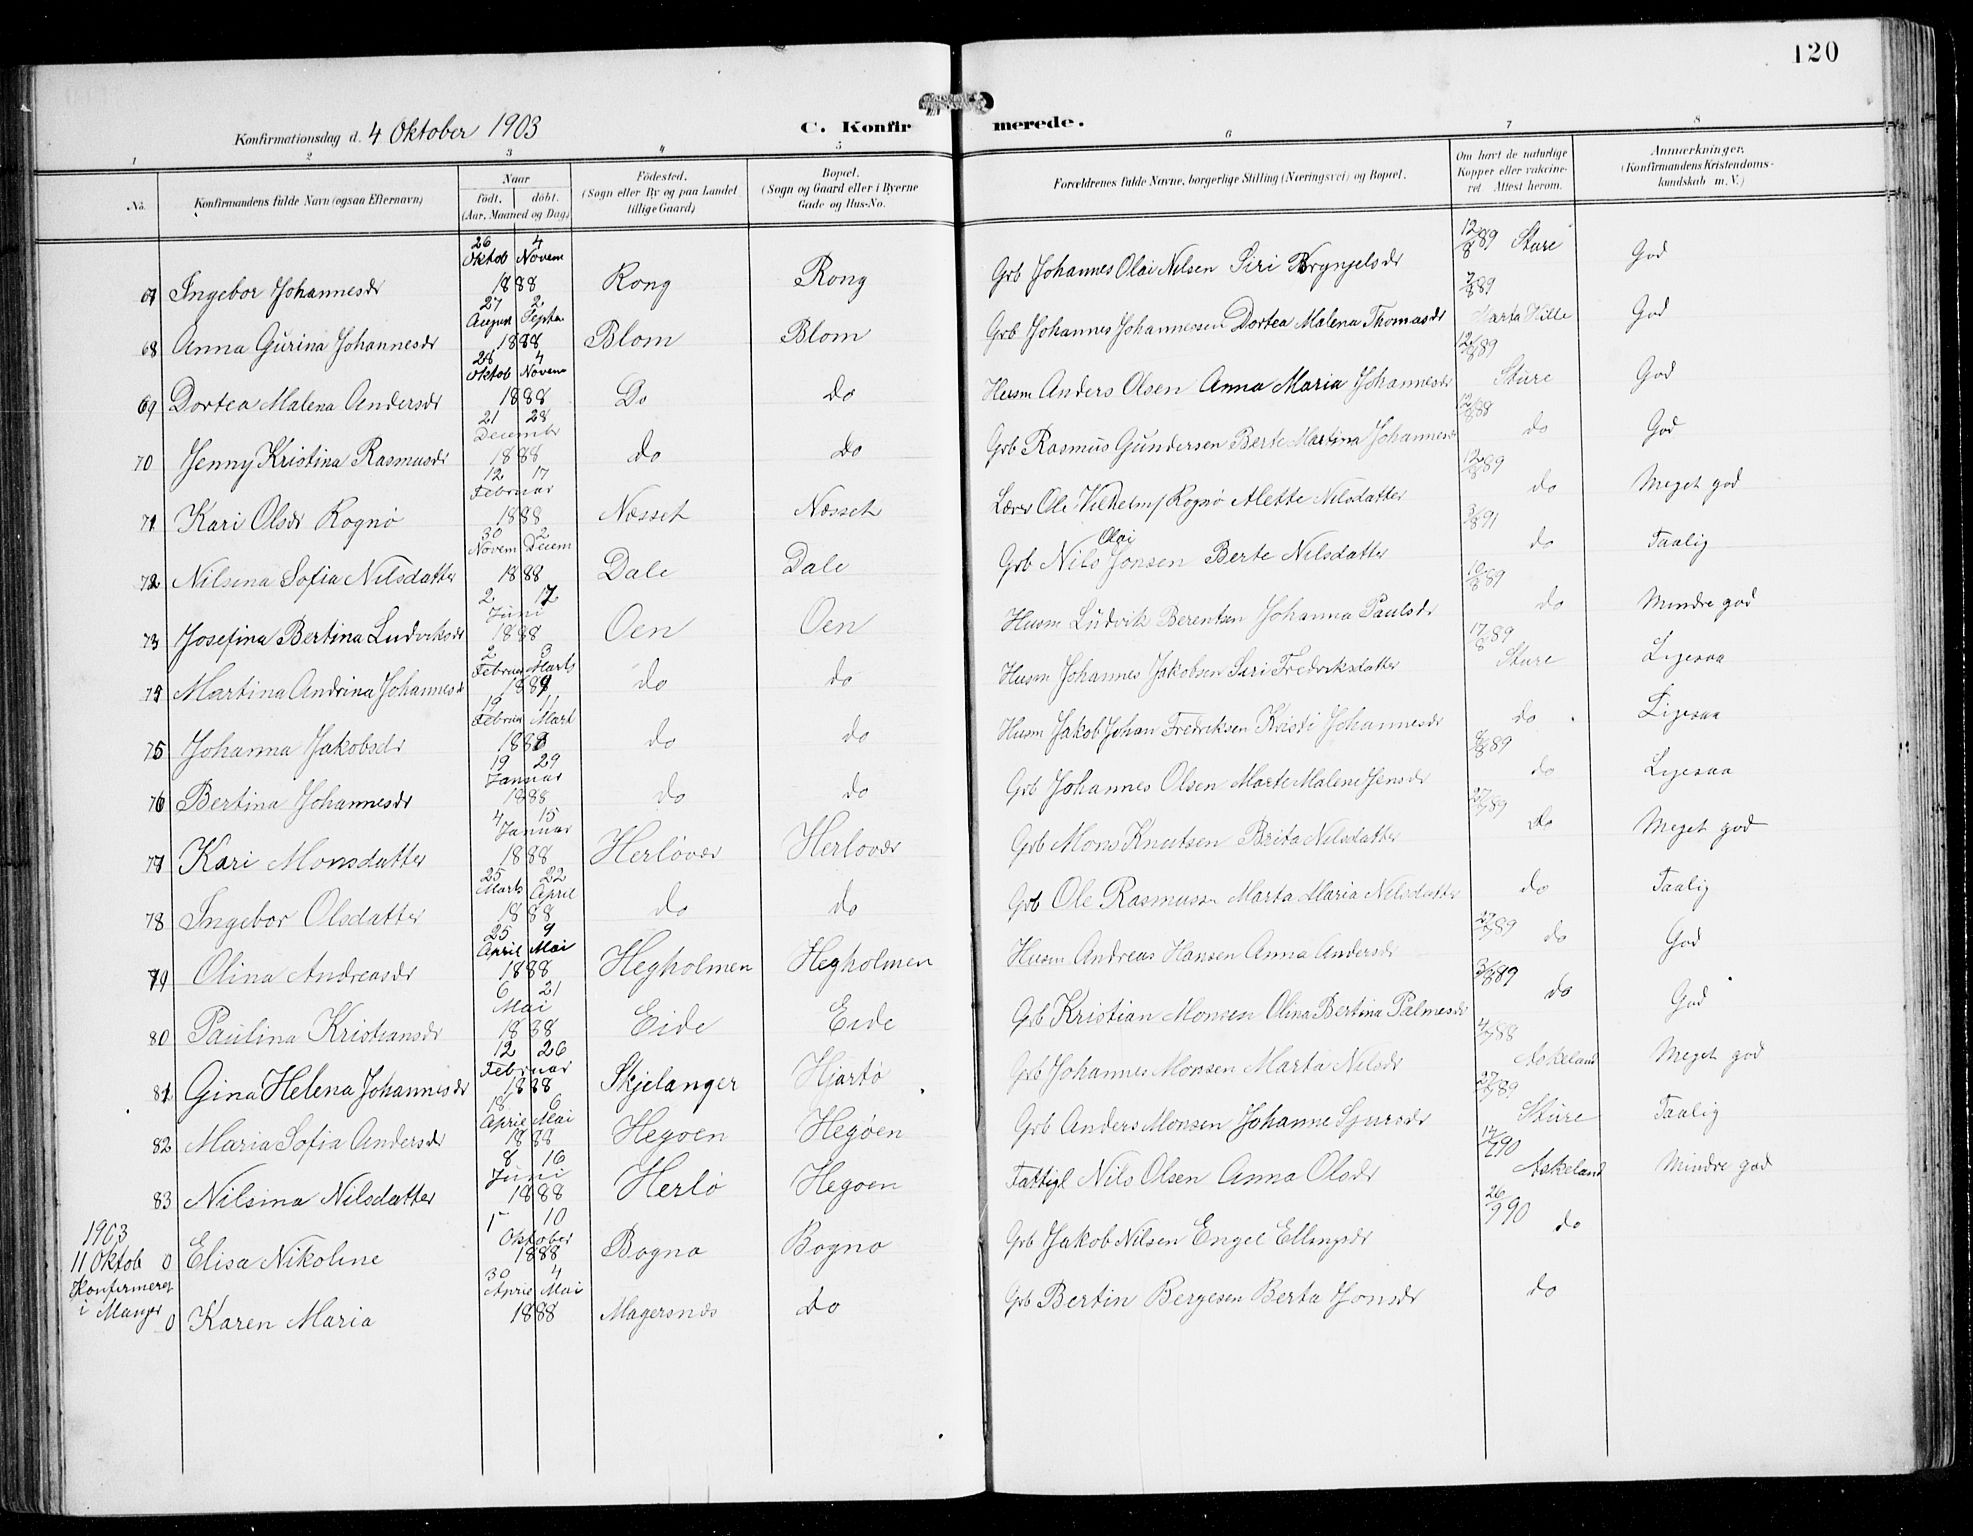 120
Konfirmationsdag d. 4 Oktober 1903
C. Konfirmerede.
1 2 3 4 5 6 7 8
No.
Konfirmandens fulde Navn (ogsaa Efternavn)
Naar
födt. döbt.
(Aar, Maaned og Dag)
Födested.
(Sogn eller By og paa Landet
tillige Gaard)
Bopæl.
(Sogn og Gaard eller i Byerne
Gade og Hus-No.
Forældrenes fulde Navne, borgerlige Stilling (Næringsvei) og Bopæl.
Om havt de naturlige
Kopper eller vakcineret
Attest herom.
Anmærkninger.
(Konfirmandens Kristendomskundskab
m. V.)
67 Ingebor Johannesdr 26 Oktob 4 Novem 1888 Rong Rong Grb Johannes Olai Nilsen Siri Brynjelsdr 12/8 89 Sture God
68 Anna Gurina Johannesdr 27 August 2 Septem 1888 Blom Blom Grb Johannes Johannessen Dortea Malena Thomasdr 7/8 89 Marta Hille God
69 Dortea Malena Andersdr 28 Oktob 4 Novem 1888 Do do Husm Anders Olsen Anna Maria Johannesdr 12/8 89 Sture God
70 Jenny Kristina Rasmusdr 21 28 December 1888 do do Grb Rasmus Gundersen Berte Martina Johannesdr 12/8 88 do God
71 Kari Olsdr Rognø 12 17 Februar 1888 Næsset Næsset Lærer Ole Vilhelm Rognø Alette Nilsdatter 12/8 89 do Meget god
72 Nilsina Sofia Nilsdatter 30 Novem 2 Decem 1888 Dale Dale Grb Nils Olai Jonsen Berte Nilsdatter 3/8 91 do Taalig
73 Josefina Bertina Ludviksdr 2 17 Juni 1888 Oen Oen Husm Ludvik Berentsen Johanna Paulsdr 10/8 89 do Mindre god
74 Martina Andrina Johannesd 2 Februar 3 Marts 1889 do do Husm Johannes Jakobsen Sari Fredriksdatter 17/8 89 Sture Ligesaa
75 Johanna Jakobsdr 19 Februar 11 Mart 1888 do do Husm Jakob Johan Fredriksen Kristi Johannesdr do Ligesaa
76 Bertina Johannesdr 19 29 Januar 1888 do do Grb Johannes Olsen Marte Malene Jensdr 8/8 89 do Ligesaa
77 Kari Monsdatter 4 15 Januar 1888 Herløvær Herlovær Grb Mons Knutsen Brita Nilsdatter 27/7 89 do Meget god
78 Ingebor Olsdatter 25 Marts 22 April 1888 do do Grb Ole Rasmussen Marta Maria Nilsdatter do Taalig
79 Olina Andreasdr 25 April 9 Mai 1888 Hegholmen Hegholmen Husm Andreas Hansen Anna Andersdr 27/7 89 do God
80 Paulina Kristiansdr 6 21 Mai 1888 Eide Eide Grb Kristian Monsen Olina Bertina Palmesdr 3/8 89 do God
81 Gina Helena Johannesdr 12 26 Februar 1888 Skjelanger Hjartø Grb Johannes Monsen Marta Nilsdr 4/7 88 Askeland Meget god
82 Maria Sofia Andersdr 18 April 6 Mai 1888 Hegoen Hegøen Grb Anders Monsen Johanne Sjursdr 27/7 89 Sture Taalig
83 Nilsina Nilsdatter 8 16 Juni 1888 Herlo Hegoen Fattigl Nils Olsen Anna Olsdr 14/7 90 Askeland Mindre god
1903
11 Oktob 0 Elisa Nikoline 1 10 Oktober 1888 Bogno Bogno Grb Jakob Nilsen Engel Ellingsdr 26/9 90 do
Konfirmeret
i Manger
0 Karen Maria 30 April 4 Mai 1888 Magersnæs do Grb Bertin Bergesen Berta Jonsdr do